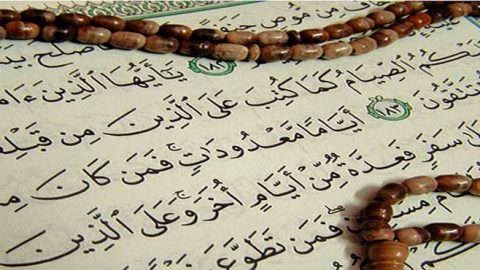 مِن مُّوصٍ
صْلَحَ ١٨٢ يَٰٓأَيُّهَا ٱلَّذِينَ ءَامَ
يْكُمُ ٱلصِّيَامُ كَمَا كُتِبَ عَلَى ٱلَّذِينَ مِن قَبْلِ
تَتَّقُونَ ١٨٣ أَيَّامًا مَّعْدُودَٰتٍ فَمَن كَانَ مِ
سَفَرٍ فَعِدَّةٌ مِّنْ أَيَّامٍ أُخَرَ وَعَلَى ٱلَّذِينَ
فَمَن تَطَوَّعَ